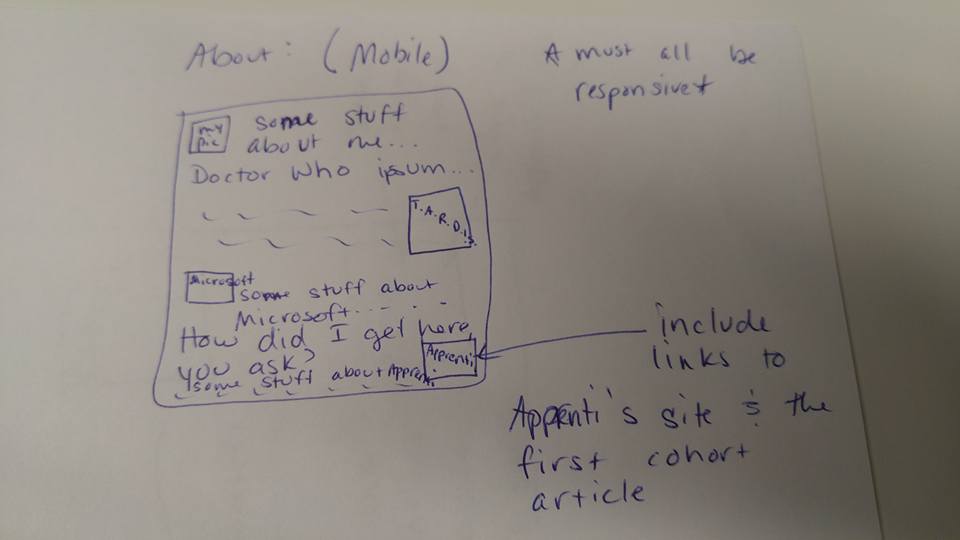 About: (Mobile)
* must all be
responsive*
my
pic
some stuff
about me...
Doctor Who ipsum...
T.A.R.D.I.S.
Microsoft
some stuff about
Microsoft......
How did I get here,
you ask?
some stuff about Apprenti
Apprenti
include
links to
Apprenti's site & the
first cohort
article